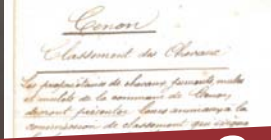 Cenon
Classement des Chevaux
Les propriétaires de chevaux, juments, mules
et mulets de la commune de Cenon,
devront présenter leurs animaux à la
commission de classement qui